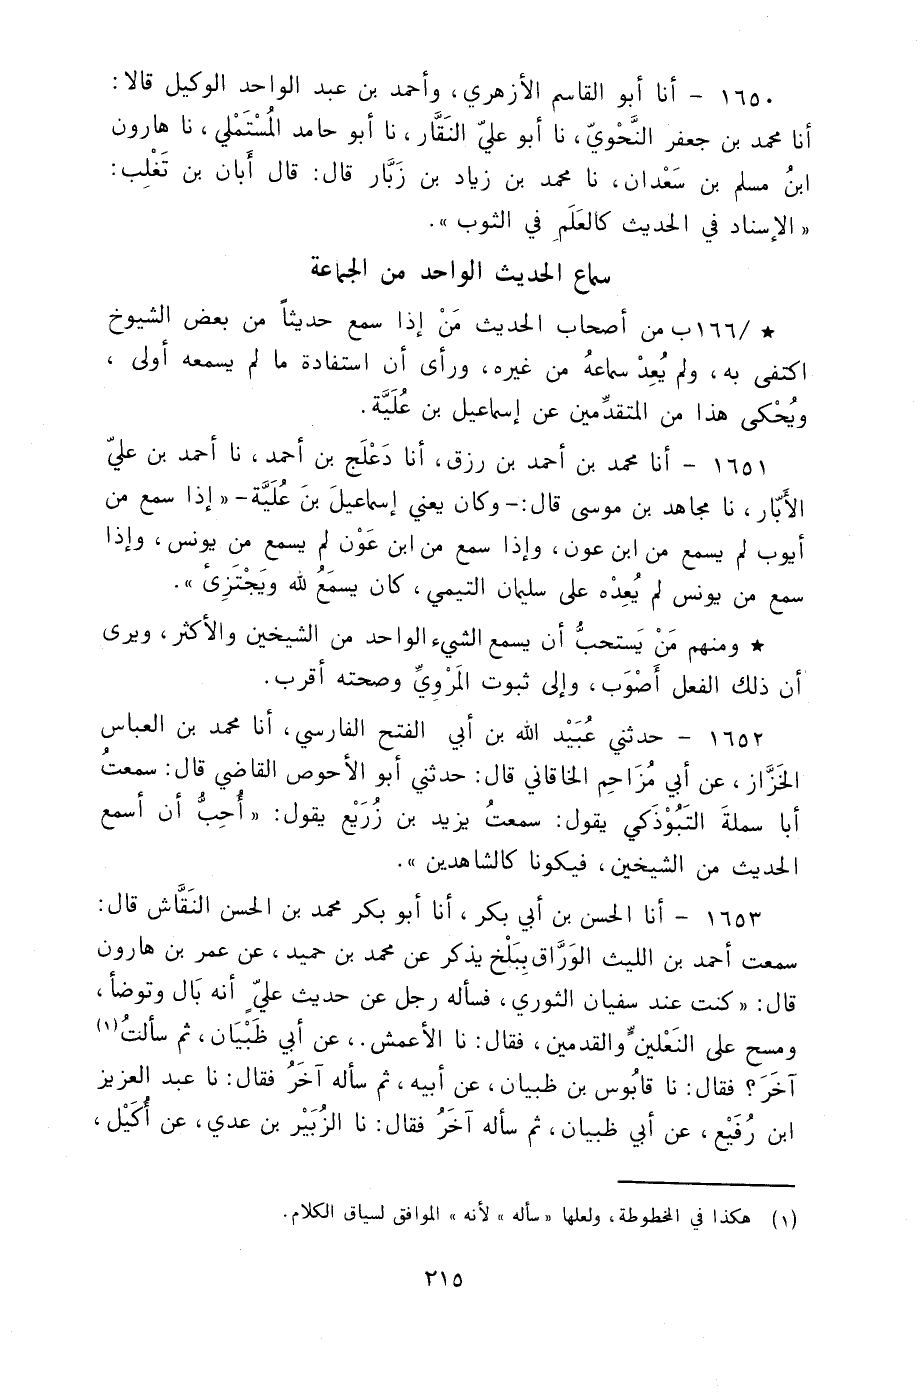 ١٦٥٠ - أنا أبو القاسم الأزهري، وأحمد بن عبد الواحد الوكيل قالا:
أنا محمد بن جعفر النَّحْوِيّ، نا أبو عليّ النَقَّار، نا أبو حامد المُسْتَمْلي، نا هارون
ابنُ مسلم بن سَعْدان، نا محمد بن زياد بن زَبَّار قال: قال أَبان بن تَغْلِب:
« الإسناد في الحديث كالعَلَمِ في الثوب ».
سماع الحديث الواحد من الجماعة
★ /١٦٦ب من أصحاب الحديث مَنْ إذا سمع حديثاً من بعض الشيوخ
اكتفى به، ولم يُعِدْ سماعهُ من غيره، ورأى أن استفادة ما لم يسمعه أولى،
ويُحْكى هذا من المتقدِّمين عن إسماعيل بن عُلَيَّة.
١٦٥١ - أنا محمد بن أحمد بن رزق، أنا دَعْلَج بن أحمد، نا أحمد بن عليّ
الأَبّار، نا مجاهد بن موسى قال:- وكان يعني إسماعيلَ بنَ عُلَيَّة- « إذا سمع من
أيوب لم يسمع من ابن عون، وإذا سمع من ابن عَوْن لم يسمع من يونس، وإذا
سمع من يونس لم يُعِدْه على سليمان التيمي، كان يسمَعُ لله ويَجْتَزِئ ».
★ ومنهم مَنْ يَستحبُّ أن يسمع الشيء الواحد من الشيخين والأكثر، ويرى
أن ذلك الفعل أَصْوَب، وإلى ثبوت المَرْوِيِّ وصحته أقرب.
١٦٥٢ - حدثني عُبَيْد الله بن أبي الفتح الفارسي، أنا محمد بن العباس
الخَزَّاز، عن أبي مُزَاحِم الخاقاني قال: حدثني أبو الأحوص القاضي قال: سمعتُ
أبا سملة التَبُوْذَكي يقول: سمعتُ يزيد بن زُرَيْع يقول: « أُحِبُّ أن أسمع
الحديث من الشيخين، فيكونا كالشاهدين ».
١٦٥٣ - أنا الحسن بن أبي بكر، أنا أبو بكر محمد بن الحسن النَقَّاش قال:
سمعت أحمد بن الليث الوَرَّاق بِبَلْخ يذكر عن محمد بن حميد، عن عمر بن هارون
قال: « كنت عند سفيان الثوري، فسأله رجل عن حديث عليّ أنه بَال وتوضأ،
ومسح على النَعْلين والقدمين، فقال: نا الأعمش.، عن أبي ظَبْيَان، ثم سألتُ(١)
آخَرَ؟ فقال: نا قابُوس بن ظبيان، عن أبيه، ثم سأله آخَرُ فقال: نا عبد العزيز
ابن رُفَيْع، عن أبي ظبيان، ثم سأله آخرُ فقال: نا الزُبَيْر بن عدي، عن أُكَيْل،
(١) هكذا في المخطوطة، ولعلها « سأله » لأنه » الموافق لسياق الكلام.
٢١٥